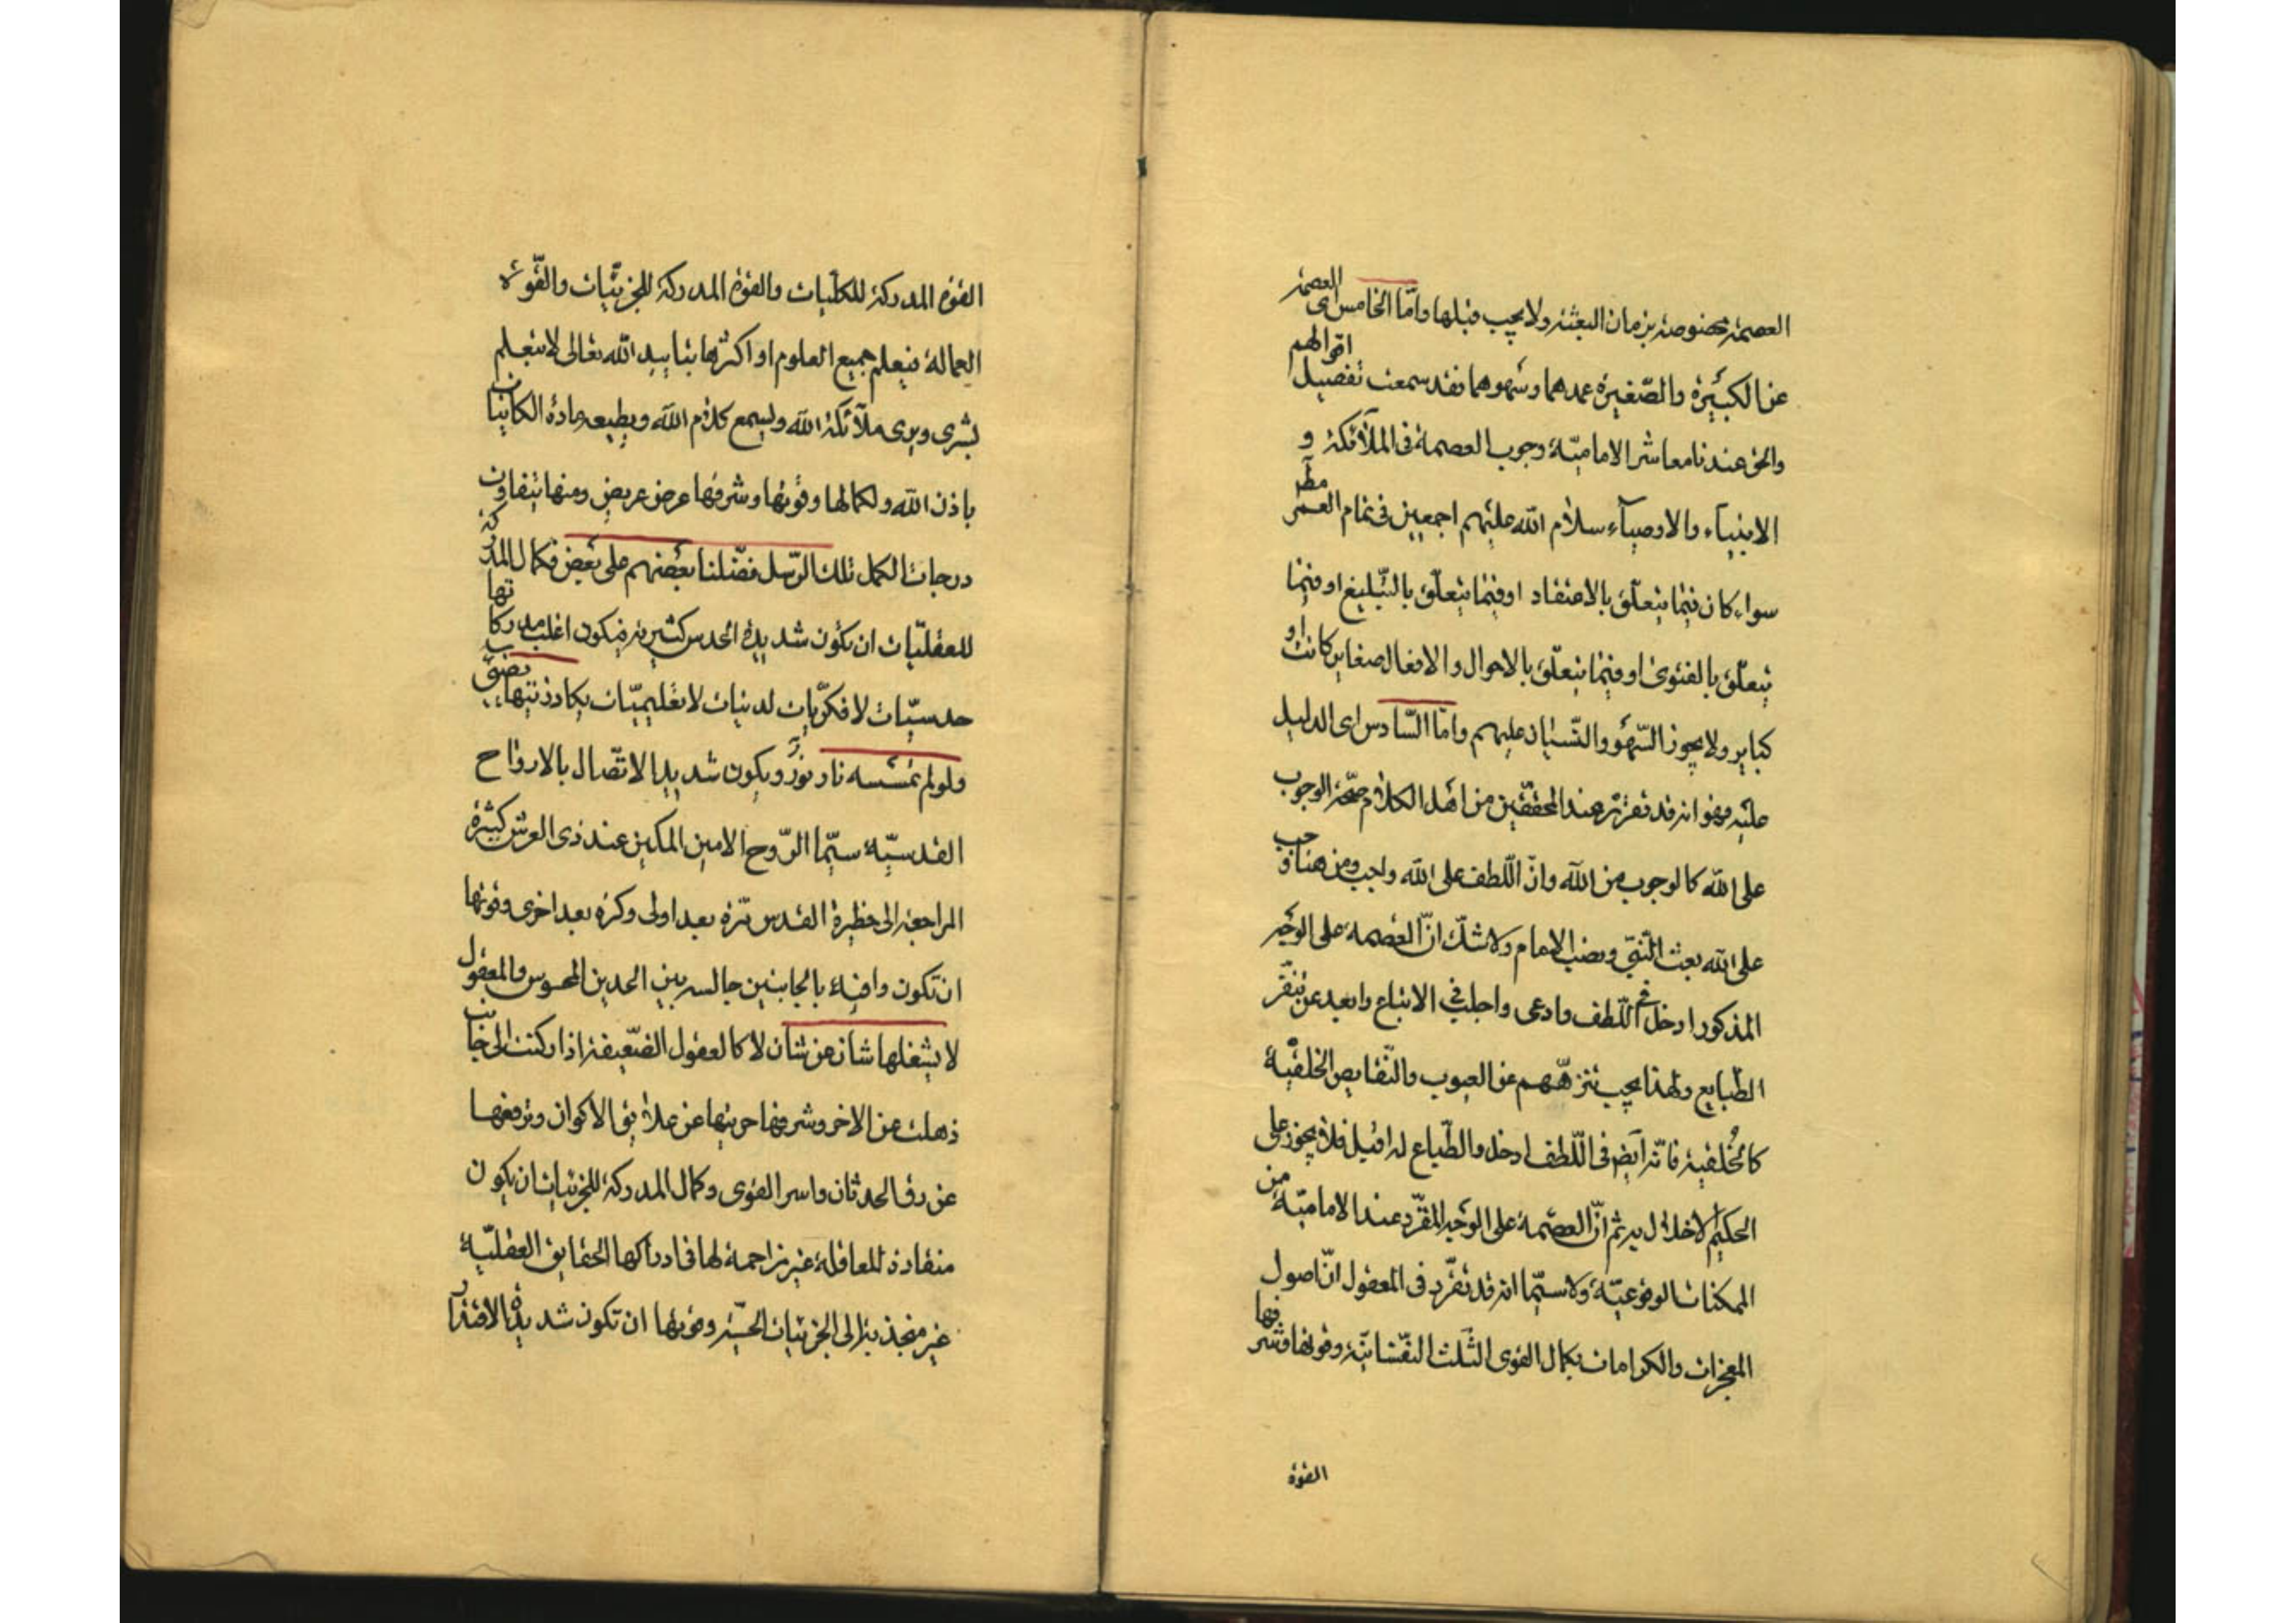 العصمة مخصوصة بزمان البعثة ولا يجب قبلها واما الخامس اى العصمة
عن الكبيرة والصّغيرة عمدهما وسهوهما فقد سمعت تفصيل اقوالهم
والحق عندنا معاشر الاماميّة وجوب العصمة فى الملآئكة و
الانبيآء والاوصيآء سلام الله عليهم اجمعين فى تمام العمر مطر
سواء كان فيما يتعلّق بالاعتقاد او فيما يتعلّق بالتّبليغ او فيما
يتعلّق بالفتوى او فيما يتعلّق بالاحوال والافعال صغاير كانت او
كباير ولا يجوز السّهو والنّسيان عليهم وامّا السّادس اى الدليل
عليه فهو انه قد تقرّر عند المحققين من اهل الكلام صحّة الوجوب
على الله كالوجوب من الله وانّ اللّطف على الله واجب ومن هنا وجب
على الله بعث النّبىّ ونصب الامام ولا شكّ انّ العصمة على الوجه
المذكور ادخل فى اللّطف وادعى واجلب فى الاتباع وابعد عن تنفّر
الطّبايع ولهذا يجب تنزّههم عن العيوب والنّقايص الخلقيّة
كالخُلقية فانّه ايض فى اللّطف ادخل والطّباع له اقبل فلا يجوز على
الحكيم الاخلال به ثم انّ العصمة على الوجه المقرّر عند الاماميّة من
الممكنات الوقوعيّة ولا سيّما انه قد تقرّر فى المعقول انّ اصول
المعجزات والكرامات بكمال القوى الثلث النّفسانيّة وقوتها وشرفها
القوة
القوة المدركة للكلّيات والقوة المدركة للجزئيّات والقوّة
العمالة فيعلم جميع العلوم او اكثرها بتاييد الله تعالى لا بتعليم
بشرى ويرى ملآئكة الله ويسمع كلام الله ويطيعه مادة الكاينات
باذن الله ولكمالها وقوتها وشرفها عرض عريض ومنها يتفاوت
درجات الكمل تلك الرّسل فضّلنا بعضهم على بعض فكمال المدركة
للعقليّات ان تكون شديدة الحدس كثيرته فيكون اغلب مدركاتها
حدسيّات لا فكرّيات لدنيات لا تعليميّات يكاد زيتها يضيئ
ولو لم تمسسه نار نورٌ ويكون شديد الاتصال بالارواح
القدسيّة سيّما الرّوح الامين المكين عند ذى العرش كثيرة
المراجعة الى حظيرة القدس مرّة بعد اولى وكرة بعد اخرى وقوتها
ان تكون وافية بالجانبين جالسه بين الحدين المحسوس والمعقول
لا يشغلها شان عن شان لا كالعقول الضّعيفة اذا ركنت الى جانب
ذهلت عن الاخر وشرفها حريتها عن علايق الاكوان وترفعها
عن رق الحدثان واسر القوى وكمال المدركة للجزئيات ان يكون
منقادة للعاقلة غير مزاحمة لها فى ادراكها الحقايق العقليّة
غير منجذبة الى الجزئيات الحسّية وقوتها ان تكون شديدة الاقتدار